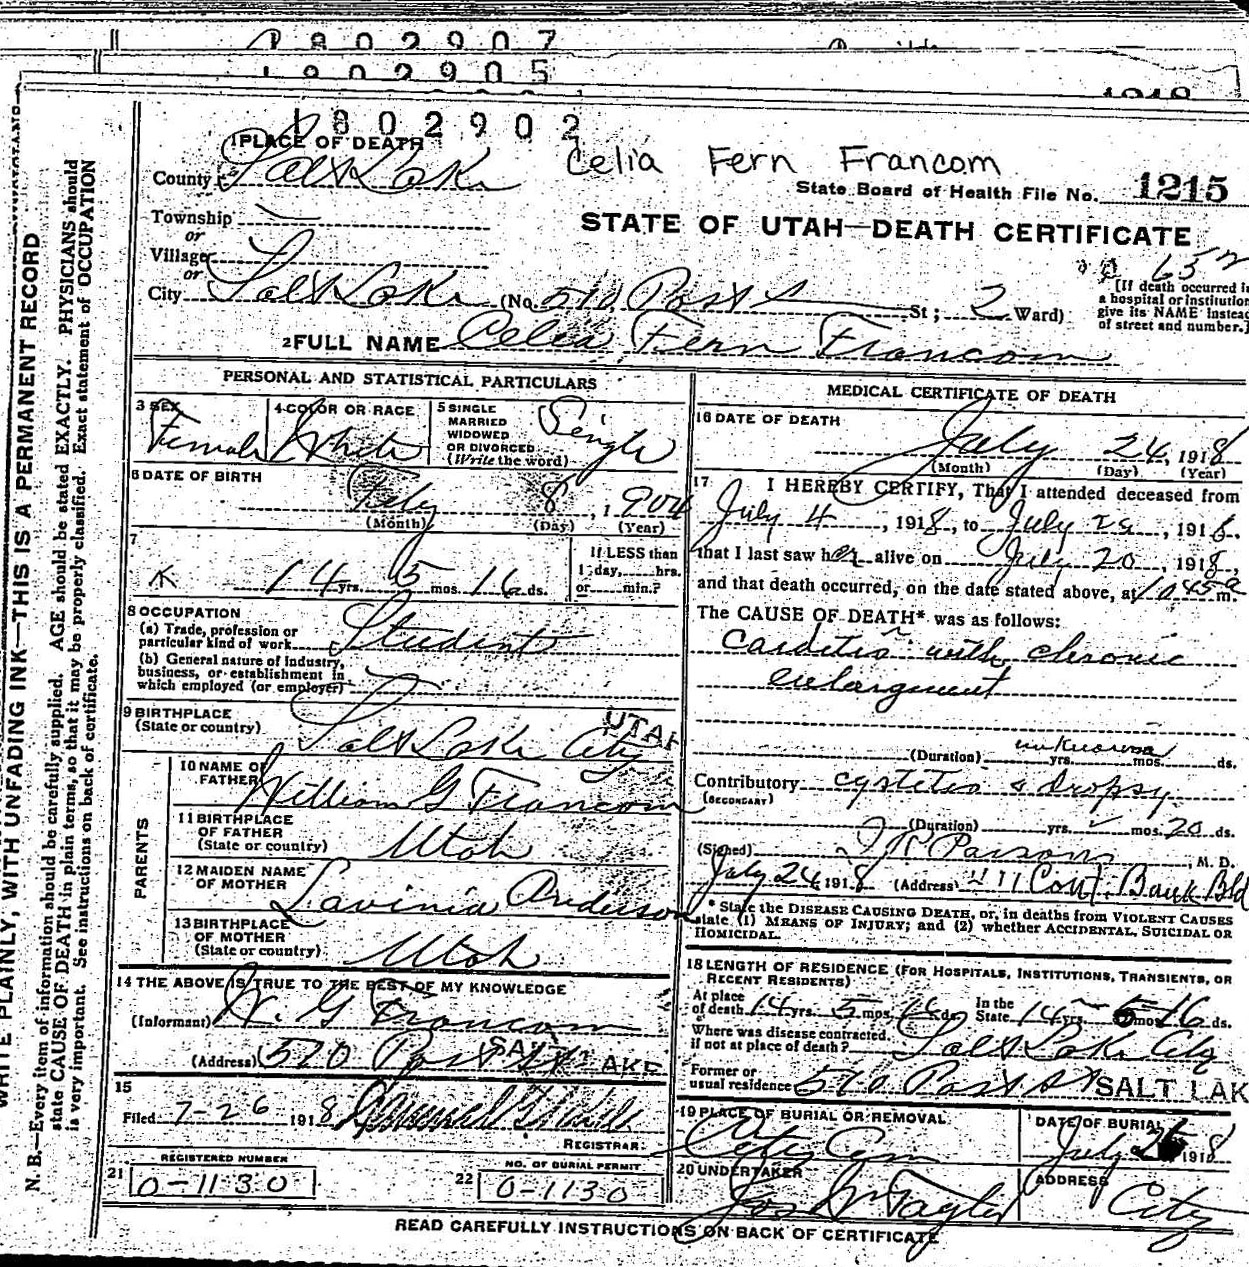 1802907
1802905
1218
1802902
1 PLACE OF DEATH
Celia Fern Francom
County Salt Lake
State Board of Health File No. 1215
Township
or
STATE OF UTAH—DEATH CERTIFICATE
Village
or
City Salt Lake (No. 570 Post St; 2 Ward)
[If death occurred in
a hospital or institution
give its NAME instead
of street and number.]
2 FULL NAME Celia Fern Francom
PERSONAL AND STATISTICAL PARTICULARS
3 SEX Female
4 COLOR OR RACE White
5 SINGLE
MARRIED
WIDOWED
OR DIVORCED
(Write the word) Single
6 DATE OF BIRTH
Feby 8, 1904
(Month) (Day) (Year)
7
14 yrs. 5 mos. 16 ds.
If LESS than
1 day, hrs.
or min.?
8 OCCUPATION
(a) Trade, profession or
particular kind of work Student
(b) General nature of Industry,
business, or establishment in
which employed (or employer)
9 BIRTHPLACE
(State or country) Salt Lake City UTAH
PARENTS
10 NAME OF
FATHER William G Francom
11 BIRTHPLACE
OF FATHER
(State or country) Utah
12 MAIDEN NAME
OF MOTHER Lavinia Anderson
13 BIRTHPLACE
OF MOTHER
(State or country) Utah
14 THE ABOVE IS TRUE TO THE BEST OF MY KNOWLEDGE
(Informant) W. G Francom
(Address) 570 Post St SALT LAKE
15
Filed 7-26 1918
REGISTRAR
REGISTERED NUMBER
21 0-1130
NO. OF BURIAL PERMIT
22 0-1130
MEDICAL CERTIFICATE OF DEATH
16 DATE OF DEATH
July 24, 1918
(Month) (Day) (Year)
17 I HEREBY CERTIFY, That I attended deceased from
July 4, 1918, to July 1918.
that I last saw her alive on July 20, 1918,
and that death occurred, on the date stated above, at 10 45 a m.
The CAUSE OF DEATH* was as follows:
Carditis with chronic
enlargment
unknown
(Duration) yrs. mos. ds.
Contributory cystitis & dropsy
(SECONDARY)
(Duration) yrs. mos. 20 ds.
(Signed) J R Parsons, M. D.
July 24, 1918 (Address) Cont. Bank Bld
* State the DISEASE CAUSING DEATH, or, in deaths from VIOLENT CAUSES
state (1) MEANS OF INJURY; and (2) whether ACCIDENTAL, SUICIDAL OR
HOMICIDAL.
18 LENGTH OF RESIDENCE (FOR HOSPITALS, INSTITUTIONS, TRANSIENTS, OR
RECENT RESIDENTS)
At place
of death 14 yrs. 5 mos. 16 ds. In the
State 14 yrs 5 mos 16 ds.
Where was disease contracted,
if not at place of death? Salt Lake City
Former or
usual residence 570 Post St SALT LAK
19 PLACE OF BURIAL OR REMOVAL
City Cem
DATE OF BURIAL
July 26 1918
20 UNDERTAKER
Jos Wm Taylor
ADDRESS
City
READ CAREFULLY INSTRUCTIONS ON BACK OF CERTIFICATE
WRITE PLAINLY, WITH UNFADING INK—THIS IS A PERMANENT RECORD
N. B.—Every item of information should be carefully supplied. AGE should be stated EXACTLY. PHYSICIANS should
state CAUSE OF DEATH in plain terms, so that it may be properly classified. Exact statement of OCCUPATION
is very important. See instructions on back of certificate.